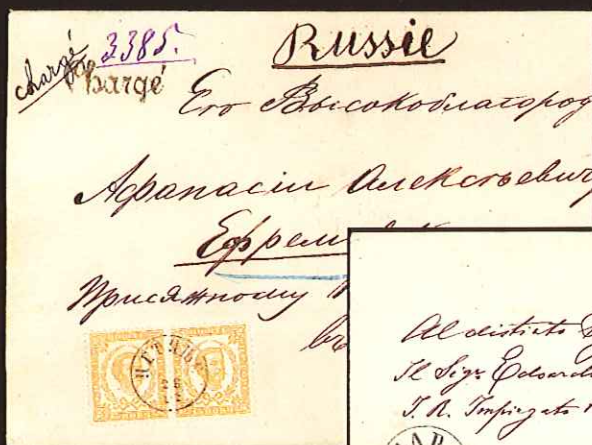 chargé
3385.
Chargé
Russie
Его Высокоблагород
Афанасiю Алексѣевич
Ефрем
Присяжному
въ
Al distinto
Il Sigr. Edoard
I. R. Impiegato